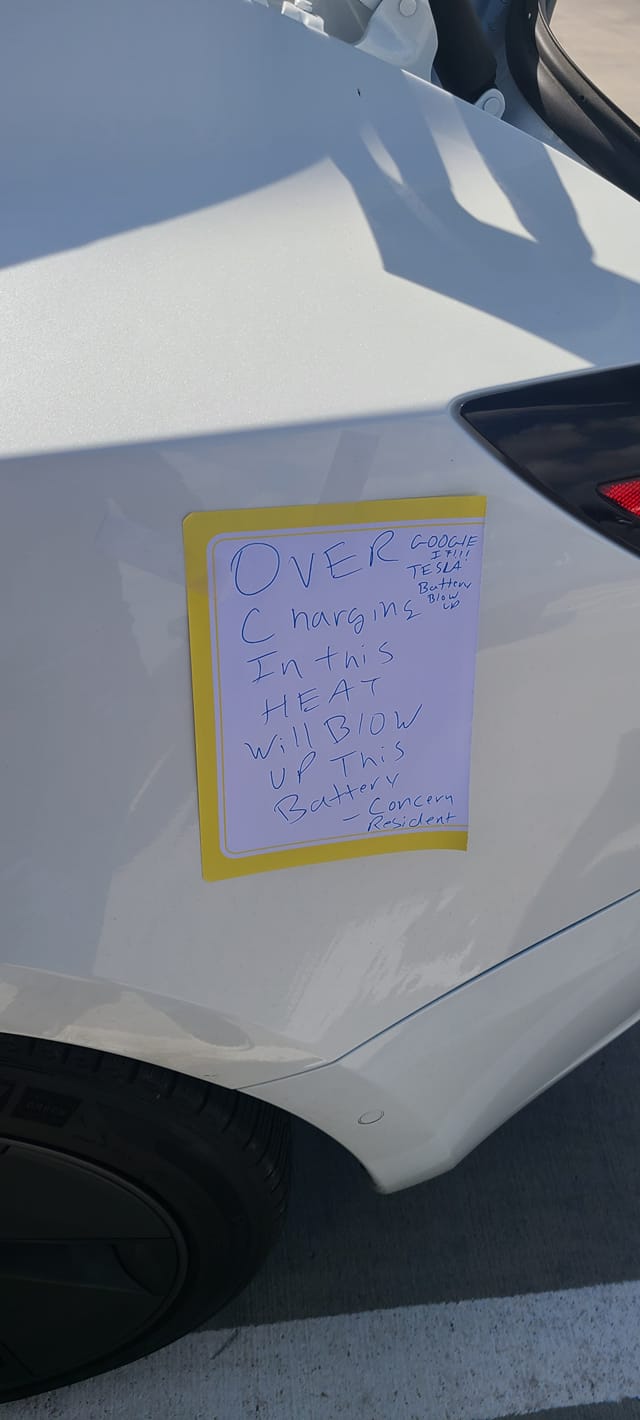 OVER
Charging
In this
HEAT
will Blow
UP This
Battery
- Concern
Resident
GOOGlE
IT!!!
TESLA
Battery
Blow
UP